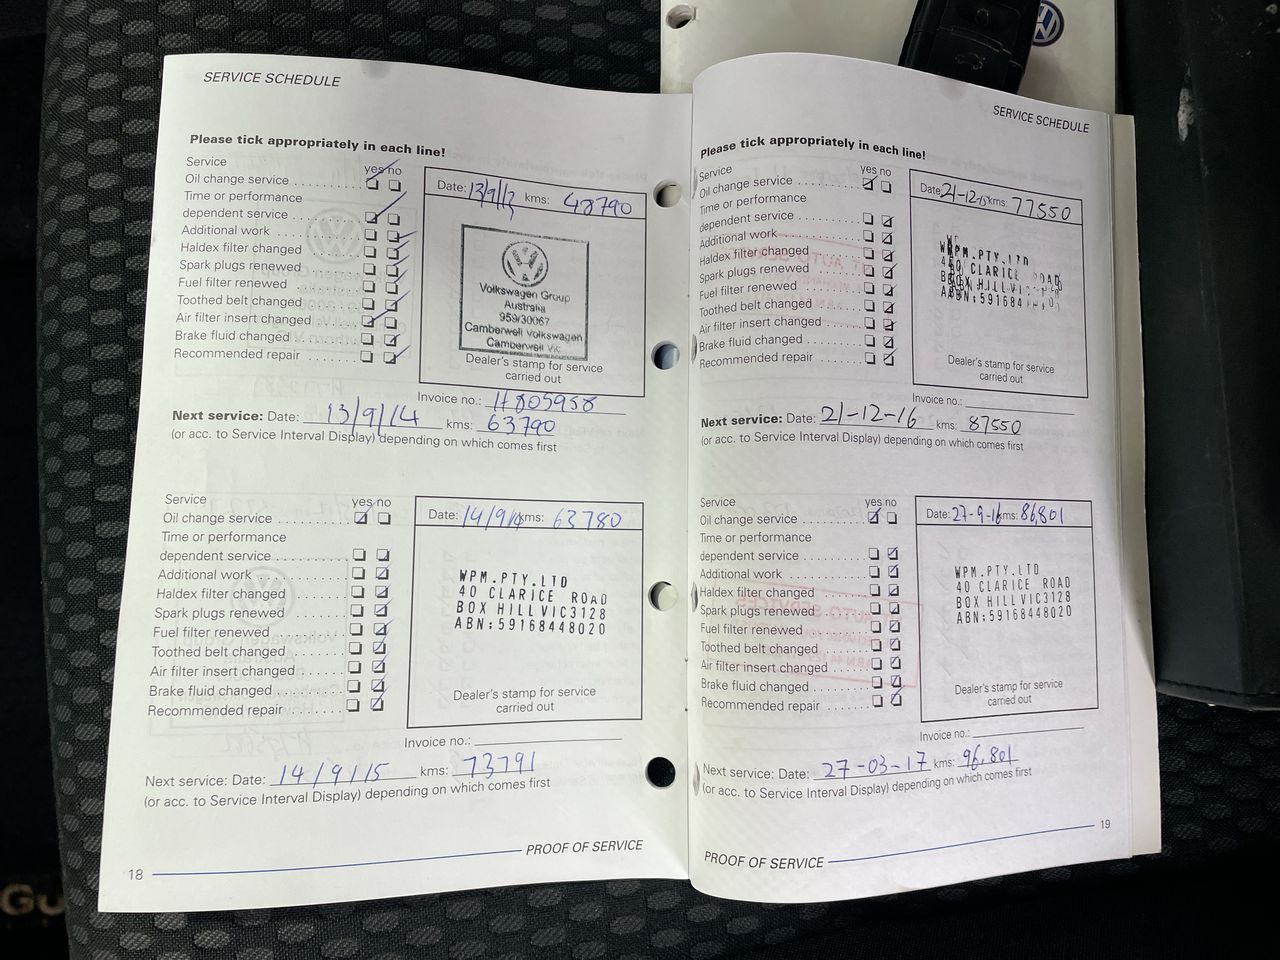 SERVICE SCHEDULE
Please tick appropriately in each line!
Service
yes no
Oil change service ........
Time or performance
dependent service ........
Additional work ........
Haldex filter changed ........
Spark plugs renewed ........
Fuel filter renewed ........
Toothed belt changed ........
Air filter insert changed ........
Brake fluid changed ........
Recommended repair ........
Date: 13/9/13 kms: 48790
Volkswagen Group
Australia
959/30067
Camberwell Volkswagen
Camberwell Vic
Dealer's stamp for service
carried out
Invoice no.: H805958
Next service: Date: 13/9/14 kms: 63790
(or acc. to Service Interval Display) depending on which comes first
Service
yes no
Oil change service ........
Time or performance
dependent service ........
Additional work ........
Haldex filter changed ........
Spark plugs renewed ........
Fuel filter renewed ........
Toothed belt changed ........
Air filter insert changed ........
Brake fluid changed ........
Recommended repair ........
Date: 14/9/14 kms: 63780
WPM.PTY.LTD
40 CLARICE ROAD
BOX HILL VIC3128
ABN:59168448020
Dealer's stamp for service
carried out
Invoice no.:
Next service: Date: 14/9/15 kms: 73791
(or acc. to Service Interval Display) depending on which comes first
PROOF OF SERVICE
18
SERVICE SCHEDULE
Please tick appropriately in each line!
Service
yes no
Oil change service ........
Time or performance
dependent service ........
Additional work ........
Haldex filter changed ........
Spark plugs renewed ........
Fuel filter renewed ........
Toothed belt changed ........
Air filter insert changed ........
Brake fluid changed ........
Recommended repair ........
Date: 21-12-15 kms: 77550
WPM.PTY.LTD
40 CLARICE ROAD
BOX HILL VIC
ABN:591684
Dealer's stamp for service
carried out
Invoice no.:
Next service: Date: 21-12-16 kms: 87550
(or acc. to Service Interval Display) depending on which comes first
Service
yes no
Oil change service ........
Time or performance
dependent service ........
Additional work ........
Haldex filter changed ........
Spark plugs renewed ........
Fuel filter renewed ........
Toothed belt changed ........
Air filter insert changed ........
Brake fluid changed ........
Recommended repair ........
Date: 27-9-16 kms: 86,801
WPM.PTY.LTD
40 CLARICE ROAD
BOX HILL VIC3128
ABN:59168448020
Dealer's stamp for service
carried out
Invoice no.:
Next service: Date: 27-03-17 kms: 96,801
(or acc. to Service Interval Display) depending on which comes first
19
PROOF OF SERVICE